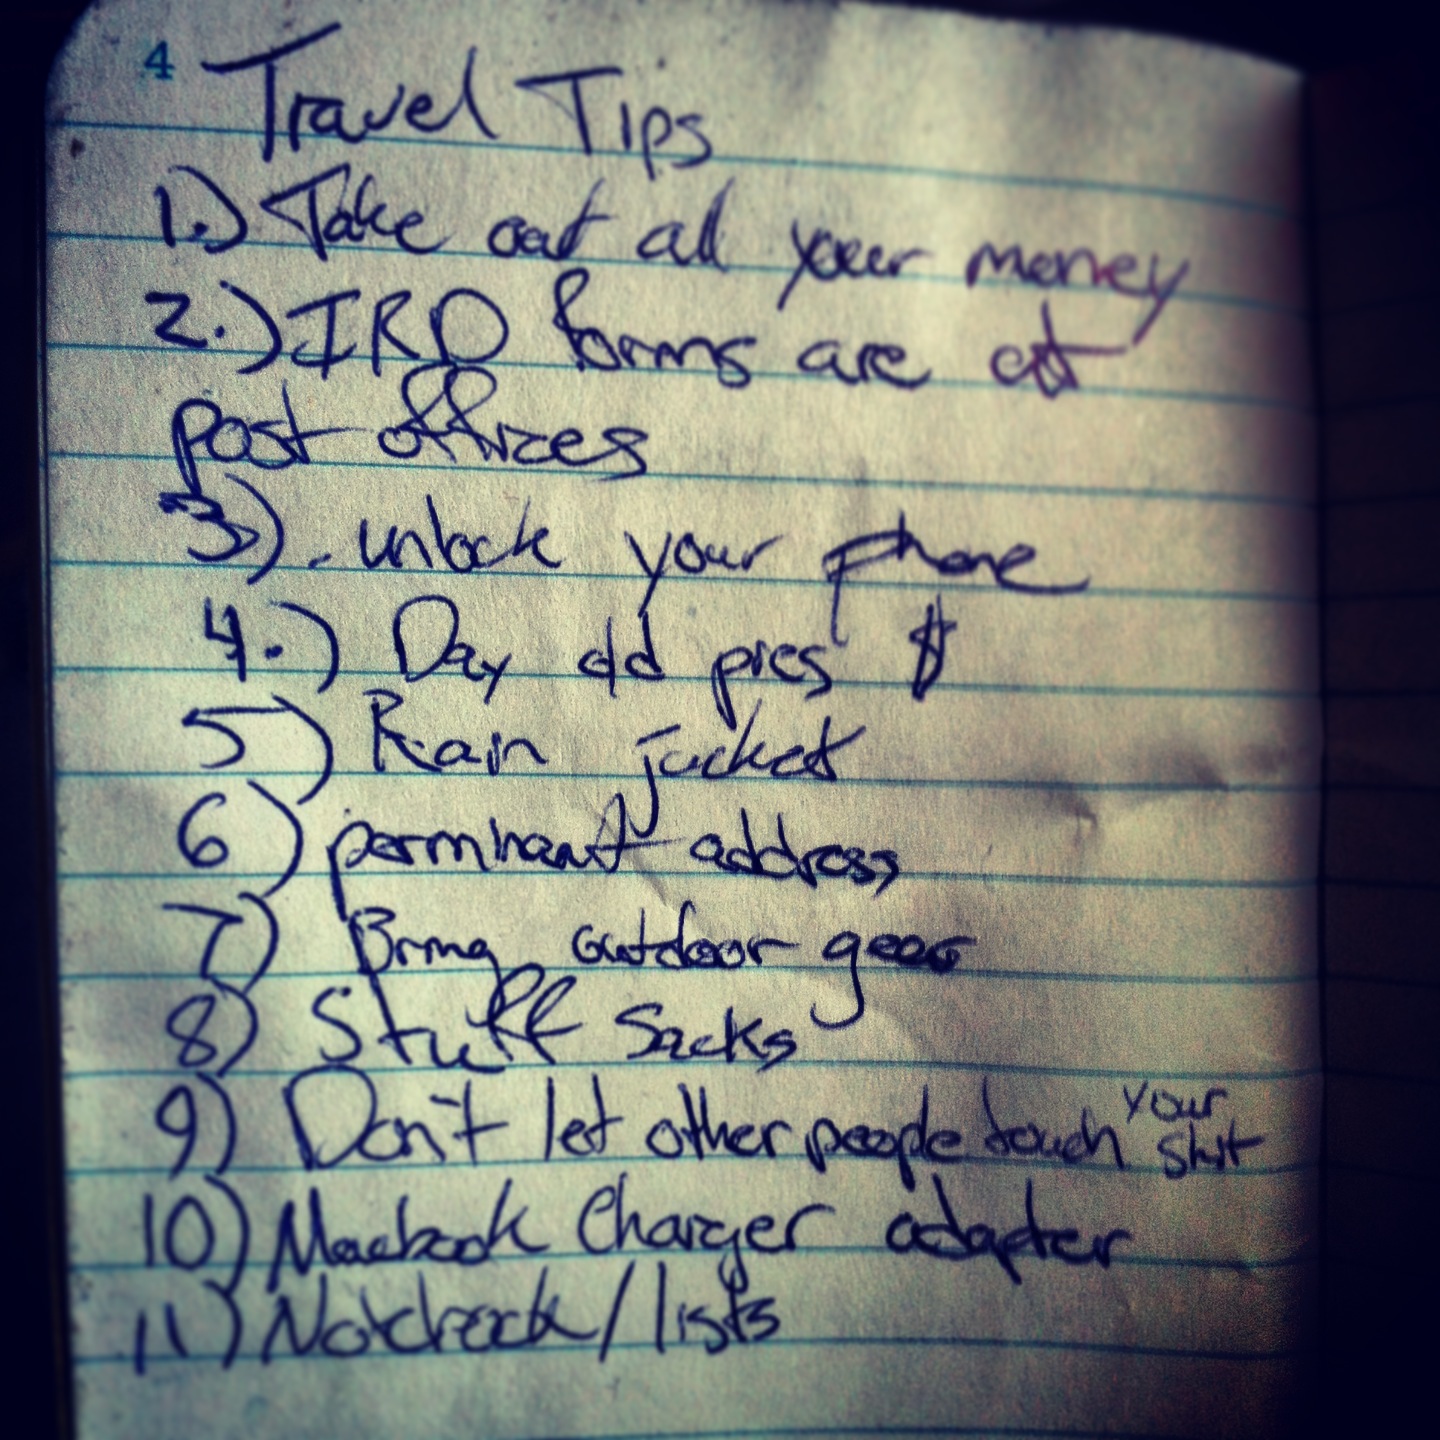 4 Travel Tips
1.) Take out all your money
2.) IRD forms are at
post offices
3.) unlock your phone
4.) Day old pies $
5) Rain jacket
6) perminant address
7) Bring outdoor gear
8) Stuff Sacks
9) Don't let other people touch your shit
10) Macbook Charger adapter
11) Notebook/lists